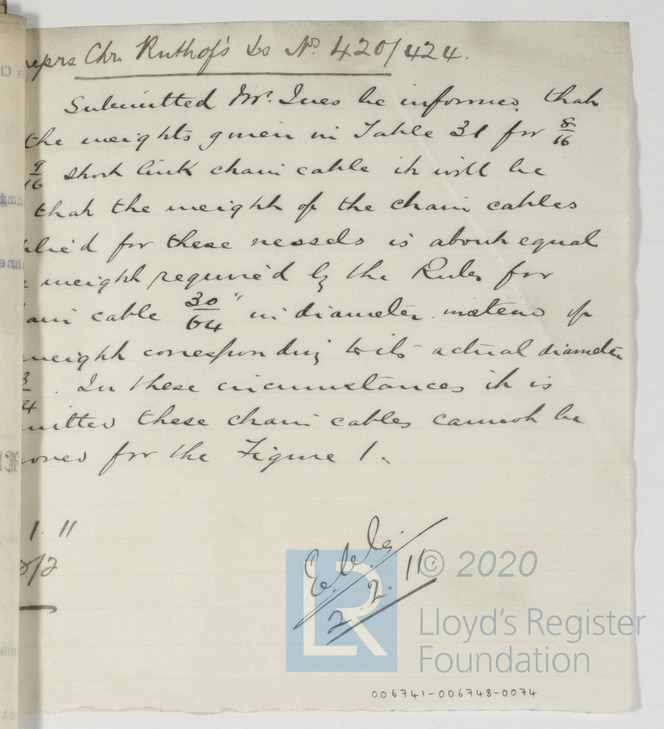 Chr. Ruthof's Ls Nos. 420/424.
Submitted Mr. Ines be informed that
the weights given in Table 31 for 8/16
9/16 short link chain cable it will be
that the weight of the chain cables
for these vessels is about equal
weight required by the Rules for
cable 30/64" in diameter instead of
weight corresponding to its actual diameter
. In these circumstances it is
these chain cables cannot be
for the Figure 1.
1. 11
2.2.11
© 2020
Lloyd's Register
Foundation
006741-006748-0074